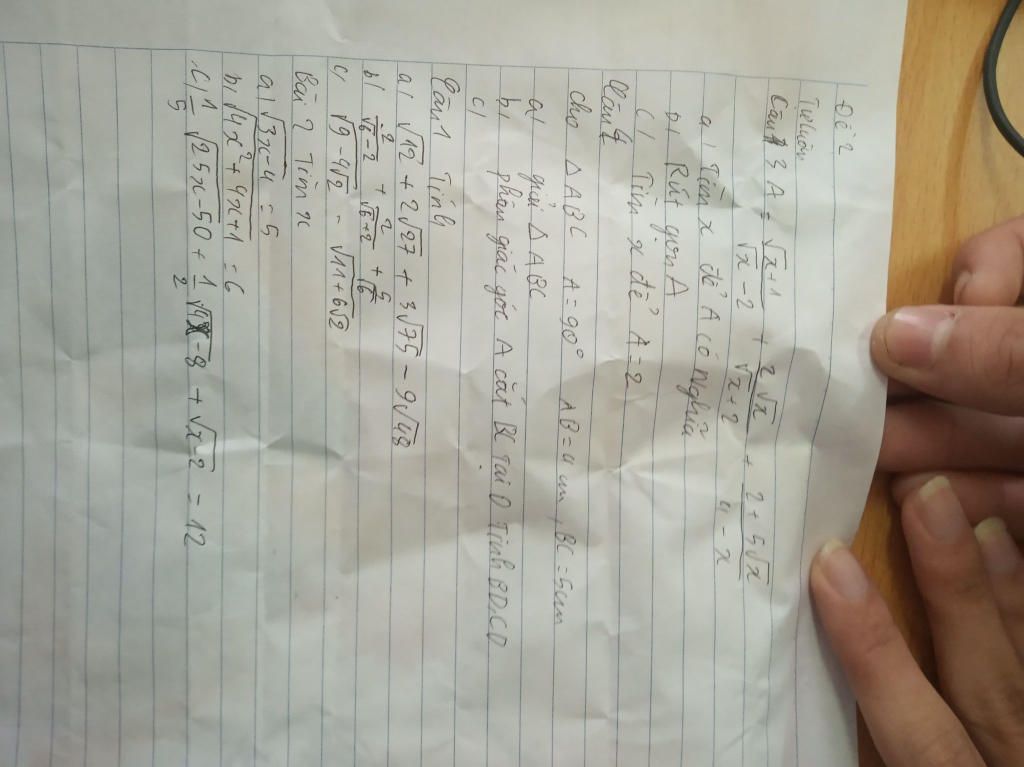 Đề 2
Tự luận
Câu 3 A = \frac{\sqrt{x}+1}{\sqrt{x}-2} + \frac{2\sqrt{x}}{\sqrt{x}+2} + \frac{2+5\sqrt{x}}{4-x}
a) Tìm x để A có nghĩa
b) Rút gọn A
c) Tìm x để A = 2
Câu 4
cho △ABC A = 90° AB = 4 cm, BC = 5cm
a) giải △ABC
b) phân giác góc A cắt BC tại D Tính BD, CD
c)
Câu 1 Tính
a) \sqrt{12} + 2\sqrt{27} + 3\sqrt{75} - 9\sqrt{48}
b) \frac{2}{\sqrt{6}-2} + \frac{2}{\sqrt{6}+2} + \frac{5}{\sqrt{6}}
c) \sqrt{9-4\sqrt{2}} - \sqrt{11+6\sqrt{2}}
Bài 2 Tìm x
a) \sqrt{3x-4} = 5
b, \sqrt{4x^2+4x+1} = 6
c) \frac{1}{5}\sqrt{25x-50} + \frac{1}{2}\sqrt{4x-8} + \sqrt{x-2} = 12